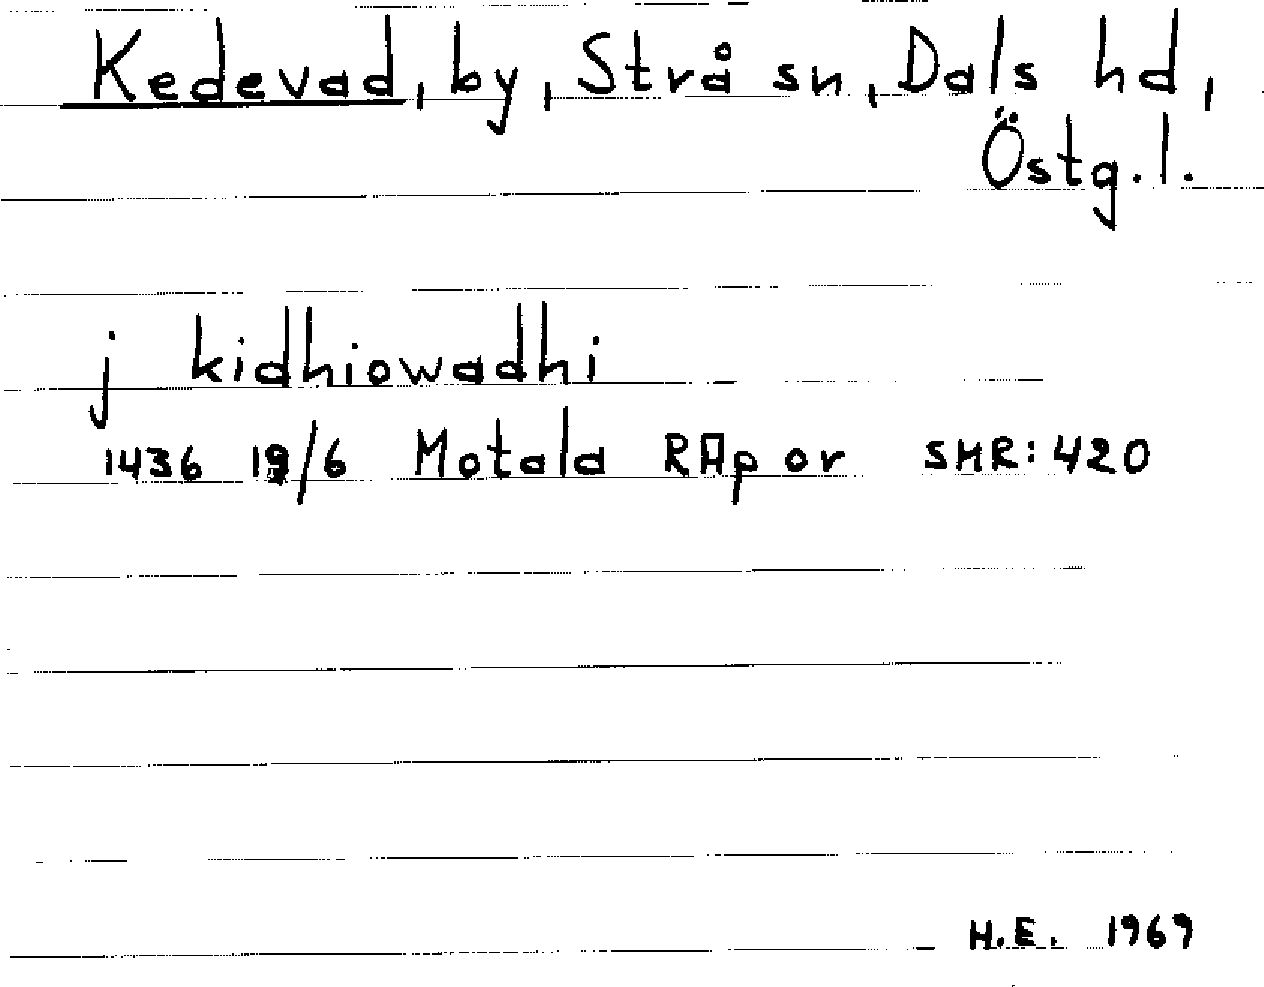 Kedevad, by, Strå sn, Dals hd,
Östg.l.
j kidhiowadhi
1436 19/6 Motala RAp or SMR: 420
H.E. 1969